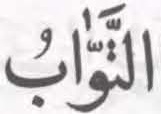 التَّوَّابُ